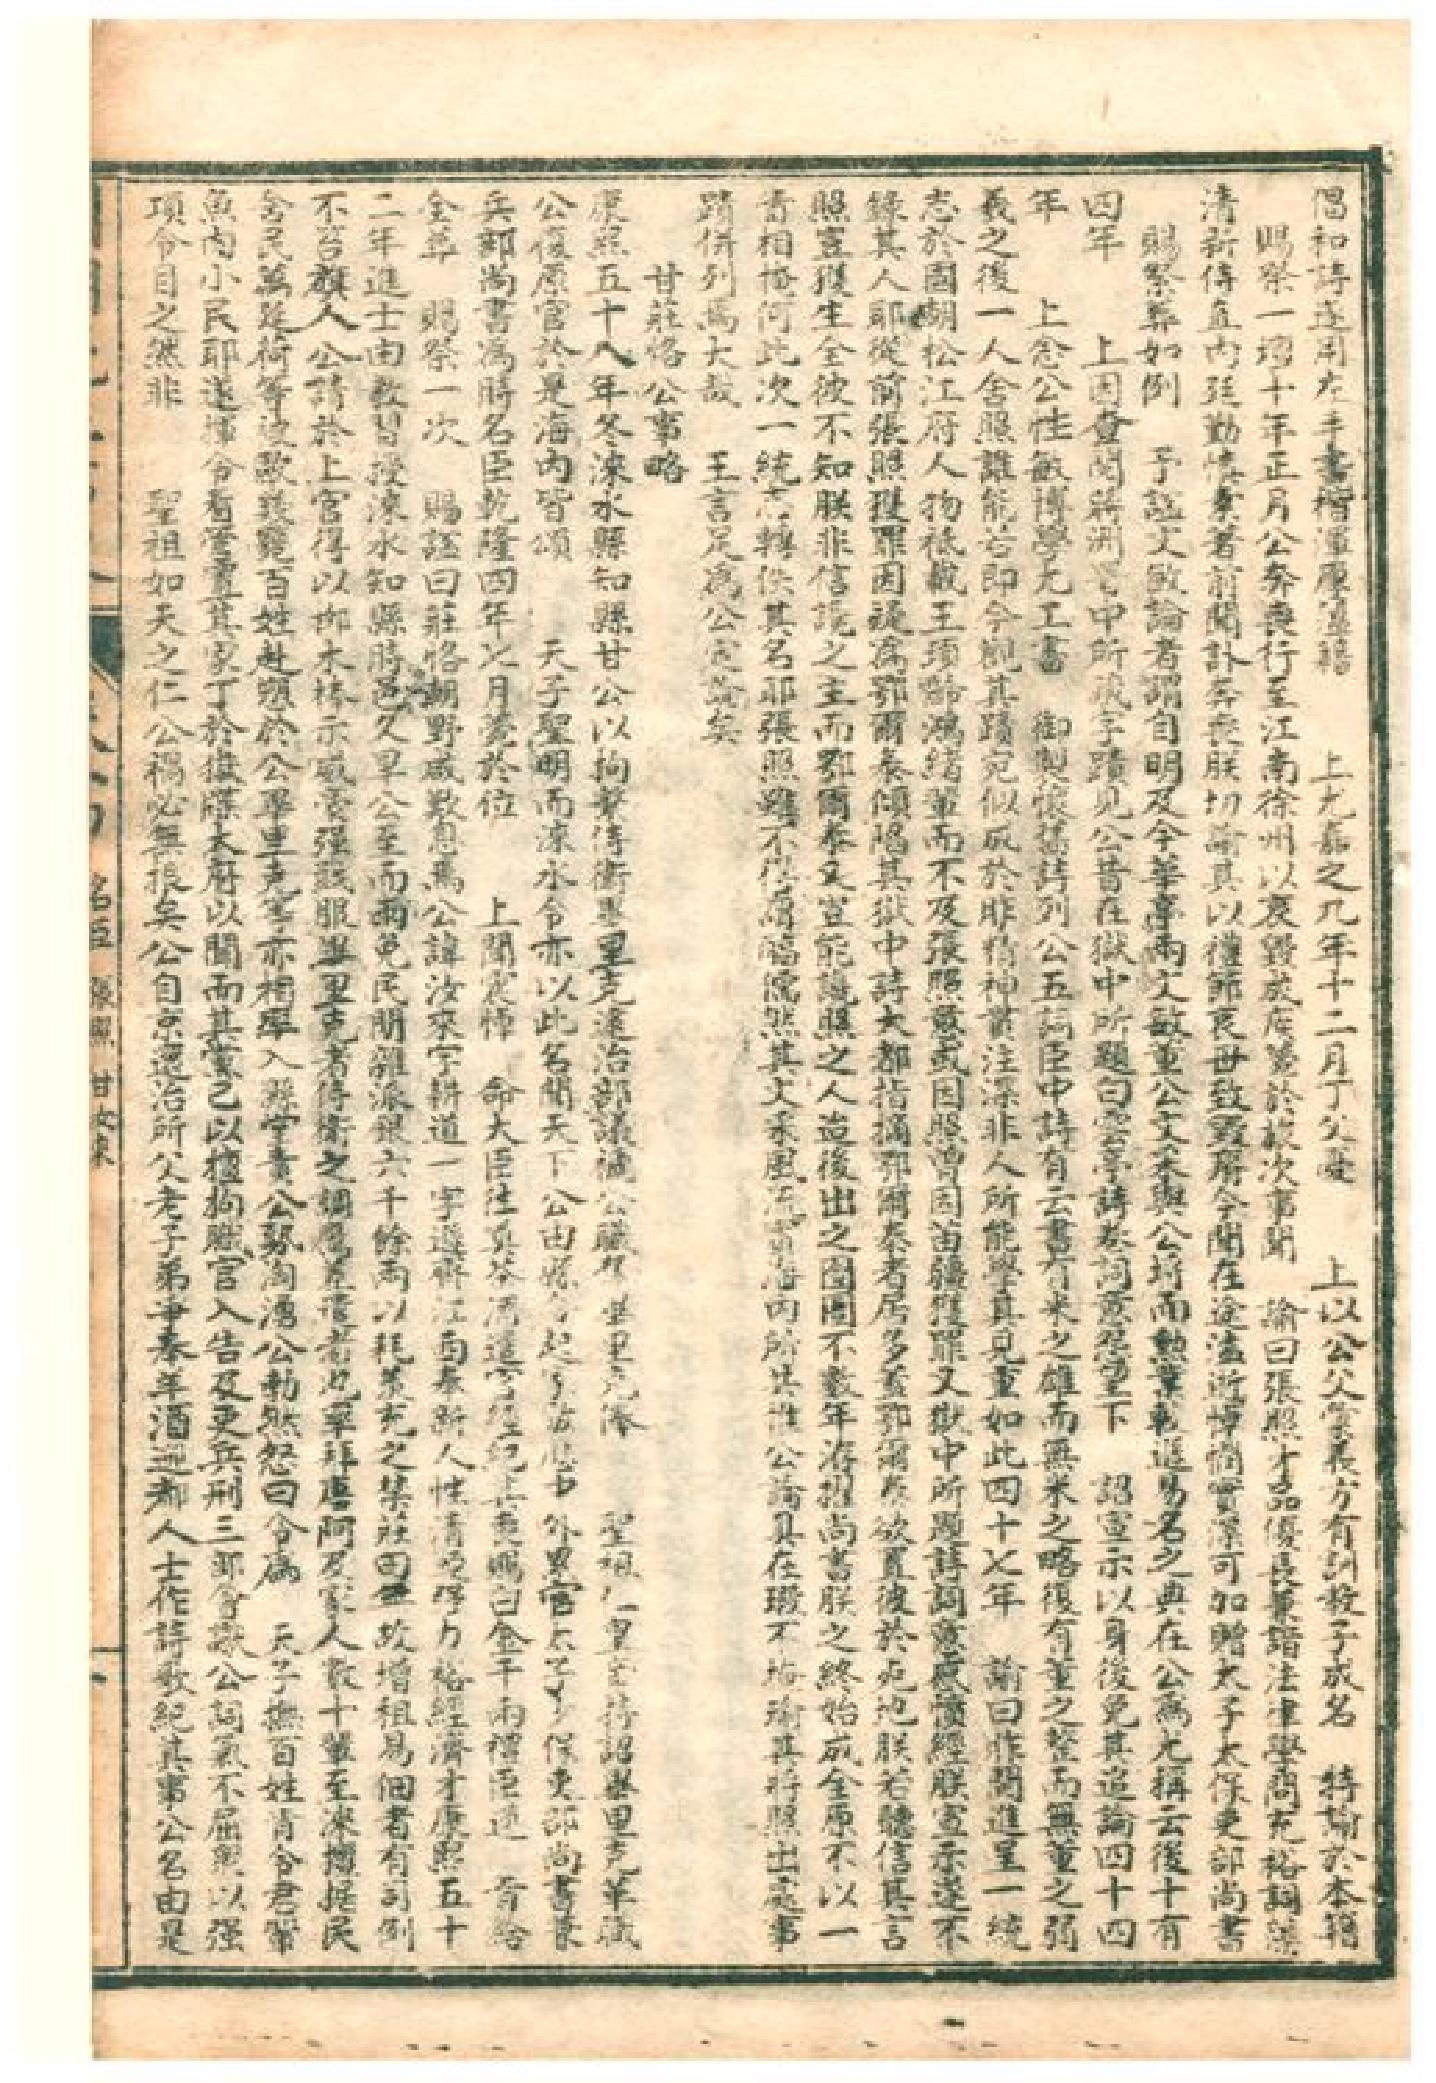 倡和詩遂用左手書楷灋應 上尤嘉之九年十二月丁父憂 上以公父彙義方有訓教子成名 特諭於本籍
賜祭一壇十年正月公奔喪行至江南徐州以哀毀成疾薨於旅次事聞 諭曰張照才品優長兼諳法律學問充裕詞藻
清新侍直內廷勤慎素著前聞訃奔喪朕切諭其以禮節哀毋致毀瘠今聞在途溘逝悼憫實深可加贈太子太保吏部尚書
賜祭葬如例 予諡文敏論者謂自明及今華亭兩文敏董公文采與公埒而勳業載進易名之典在公為尤稱云後十有
四年 上因查閱蔣洲署中所藏字蹟見公昔在獄中所題白雲亭詩卷詞意怨望下 詔宣示以身後免其追論四十四
年 上念公性敏博學尤工書 御製懷舊詩列公五詞臣中詩有云書有米之雄而無米之略復有董之整而無董之弱
羲之後一人舍照誰能若即今觀其蹟宛似成於昨精神貫注深非人所能學其見重如此四十七年 諭曰昨閱進呈一統
志於國朝松江府人物祗載王頊齡鴻緒輩而不及張照蓋或因照曾因苗疆獲罪又獄中所題詩詞意感憤經朕宣示遂不
錄其人耶從前張照獲罪因褫為鄂爾泰傾陷其獄中詩大都指摘鄂爾泰者居多蓋鄂爾泰欲置彼於死地朕若聽信其言
照豈獲生全彼不知朕非信讒之主而鄂爾泰又豈能讒照之人迨後出之囹圄不數年洊擢尚書朕之終始成全原不以一
眚相掩何此次一統志轉佚其名耶張照雖不得謂醇儒然其文采風流實海內所共推公論具在瑕不掩瑜其將照出處事
蹟併列焉大哉 王言足為公定論矣
甘莊恪公事略
康熙五十八年冬淶水縣知縣甘公以拘繫侍衛畢里克逮治部議褫公職 畢里克俸 聖祖仁皇帝特詔畢里克革職
公復原官於是海內皆頌 天子聖明而淶水令亦以此名聞天下公由縣令起家 中外累官太子少保吏部尚書兼
兵部尚書為時名臣乾隆四年七月薨於位 上聞震悼 命大臣往奠茶酒遣官經紀其喪賜白金千兩禮臣進 旨給
全葬 賜祭一次 賜諡曰莊恪朝野咸歎息焉公諱汝來字耕道一字遜齋江西奉新人性清 力裕經濟才康熙五十
二年進士由教習授淶水知縣時邑久旱公至而雨免民間雜派銀六千餘兩以耗羨充之禁莊田無故增租易佃者有司例
不笞旗人公請於上官得以柳木棒示威豪强 服畢里克者侍衛之調鷹 遣者也率拜唐阿及家人數十輩至淶擅據民
舍民萬廷荷等被毆瀕斃百姓赴愬於公畢里克等亦相率入縣堂責公勢洶湧公勃然怒曰令為 天子撫百姓肯令君輩
魚肉小民耶遂揮令 其家丁於獄牒大府以聞而其黨已以擅拘職官入告及吏兵刑三部會讞公詞氣不屈熟以强
項令目之然非 聖祖如天之仁公禍必無振矣公自京還治所父老子弟爭奉羊酒迎都人士作詩歌紀其事公名由是
名臣 張照 甘汝來